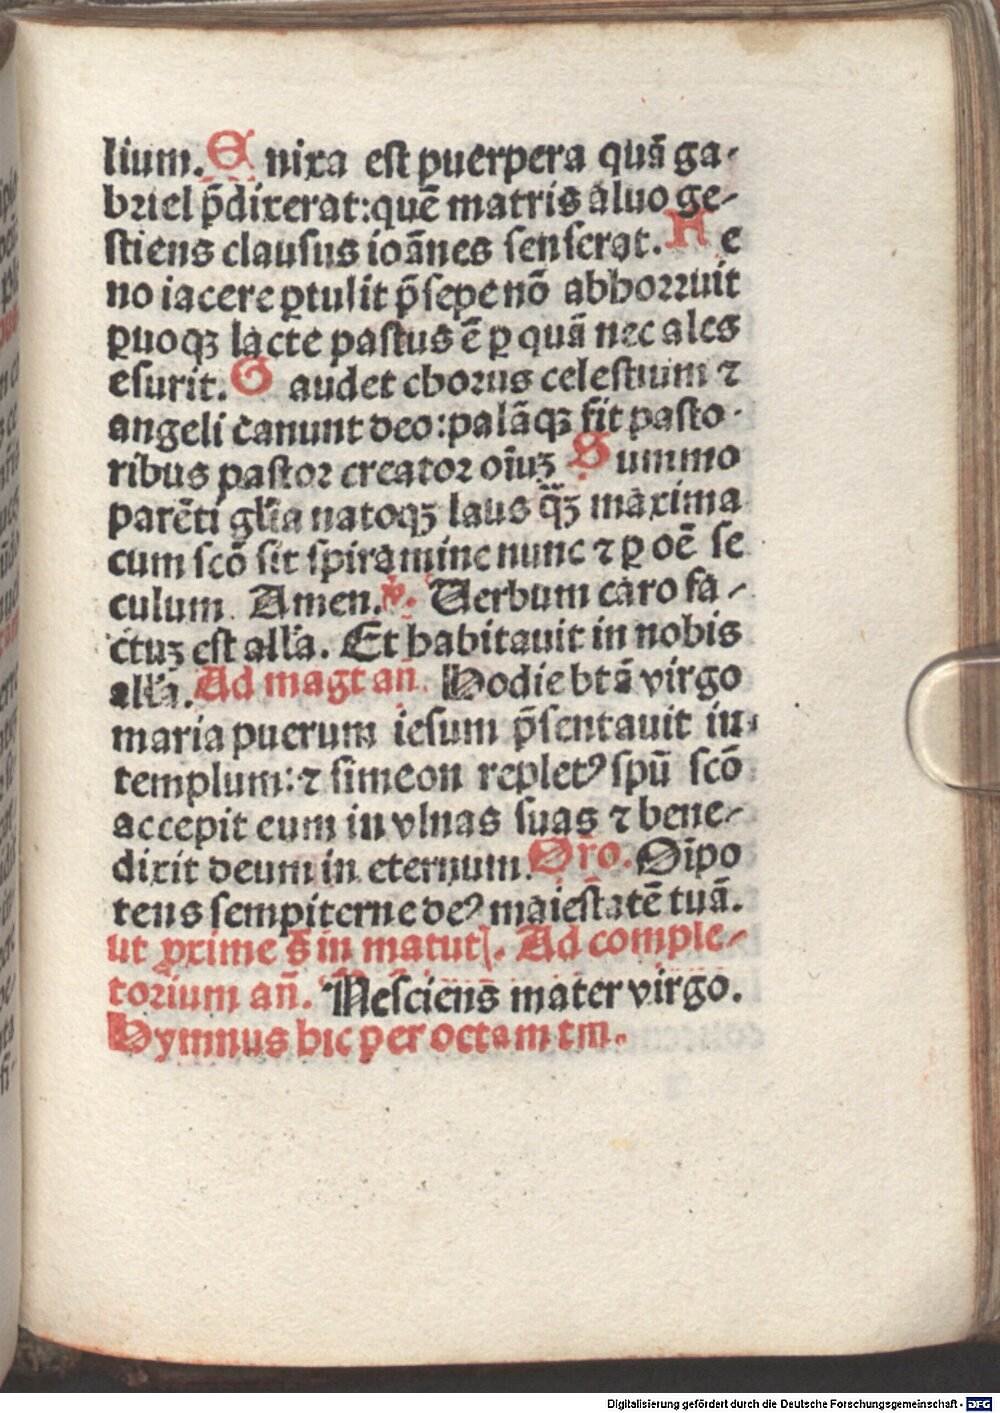 lium. Enixa est puerpera quā ga-
briel p̄dixerat: quē matris aluo ge-
stiens clausus ioānes senserat. Fe
no iacere ꝑtulit p̄sepe nō abhorruit
ꝑuoqꝫ lacte pastus ē ꝑ quā nec ales
esurit. Gaudet chorus celestium ⁊
angeli canunt deo: palāqꝫ fit pasto-
ribus pastor creator oīuꝫ Summo
parēti gl̄ia natoqꝫ laus qꝫ̄ maxima
cum scō sit spiramine nunc ⁊ ꝑ oē se
culum. Amen. ℣. Uerbum caro fa-
ctuꝫ est all̄a. Et habitauit in nobis
all̄a. Ad magt an̄. Hodie btā virgo
maria puerum iesum p̄sentauit in
templum: ⁊ simeon repletꝰ spū scō
accepit eum in vlnas suas ⁊ bene-
dixit deum in eternum. Oro. Oīpo
tens sempiterne deꝰ maiestatē tuā.
ut ꝓxime s̄ in matut. Ad comple-
torium an̄. Nesciens mater virgo.
Hymnus hic per octam tm.
Digitalisierung gefördert durch die Deutsche Forschungsgemeinschaft - DFG